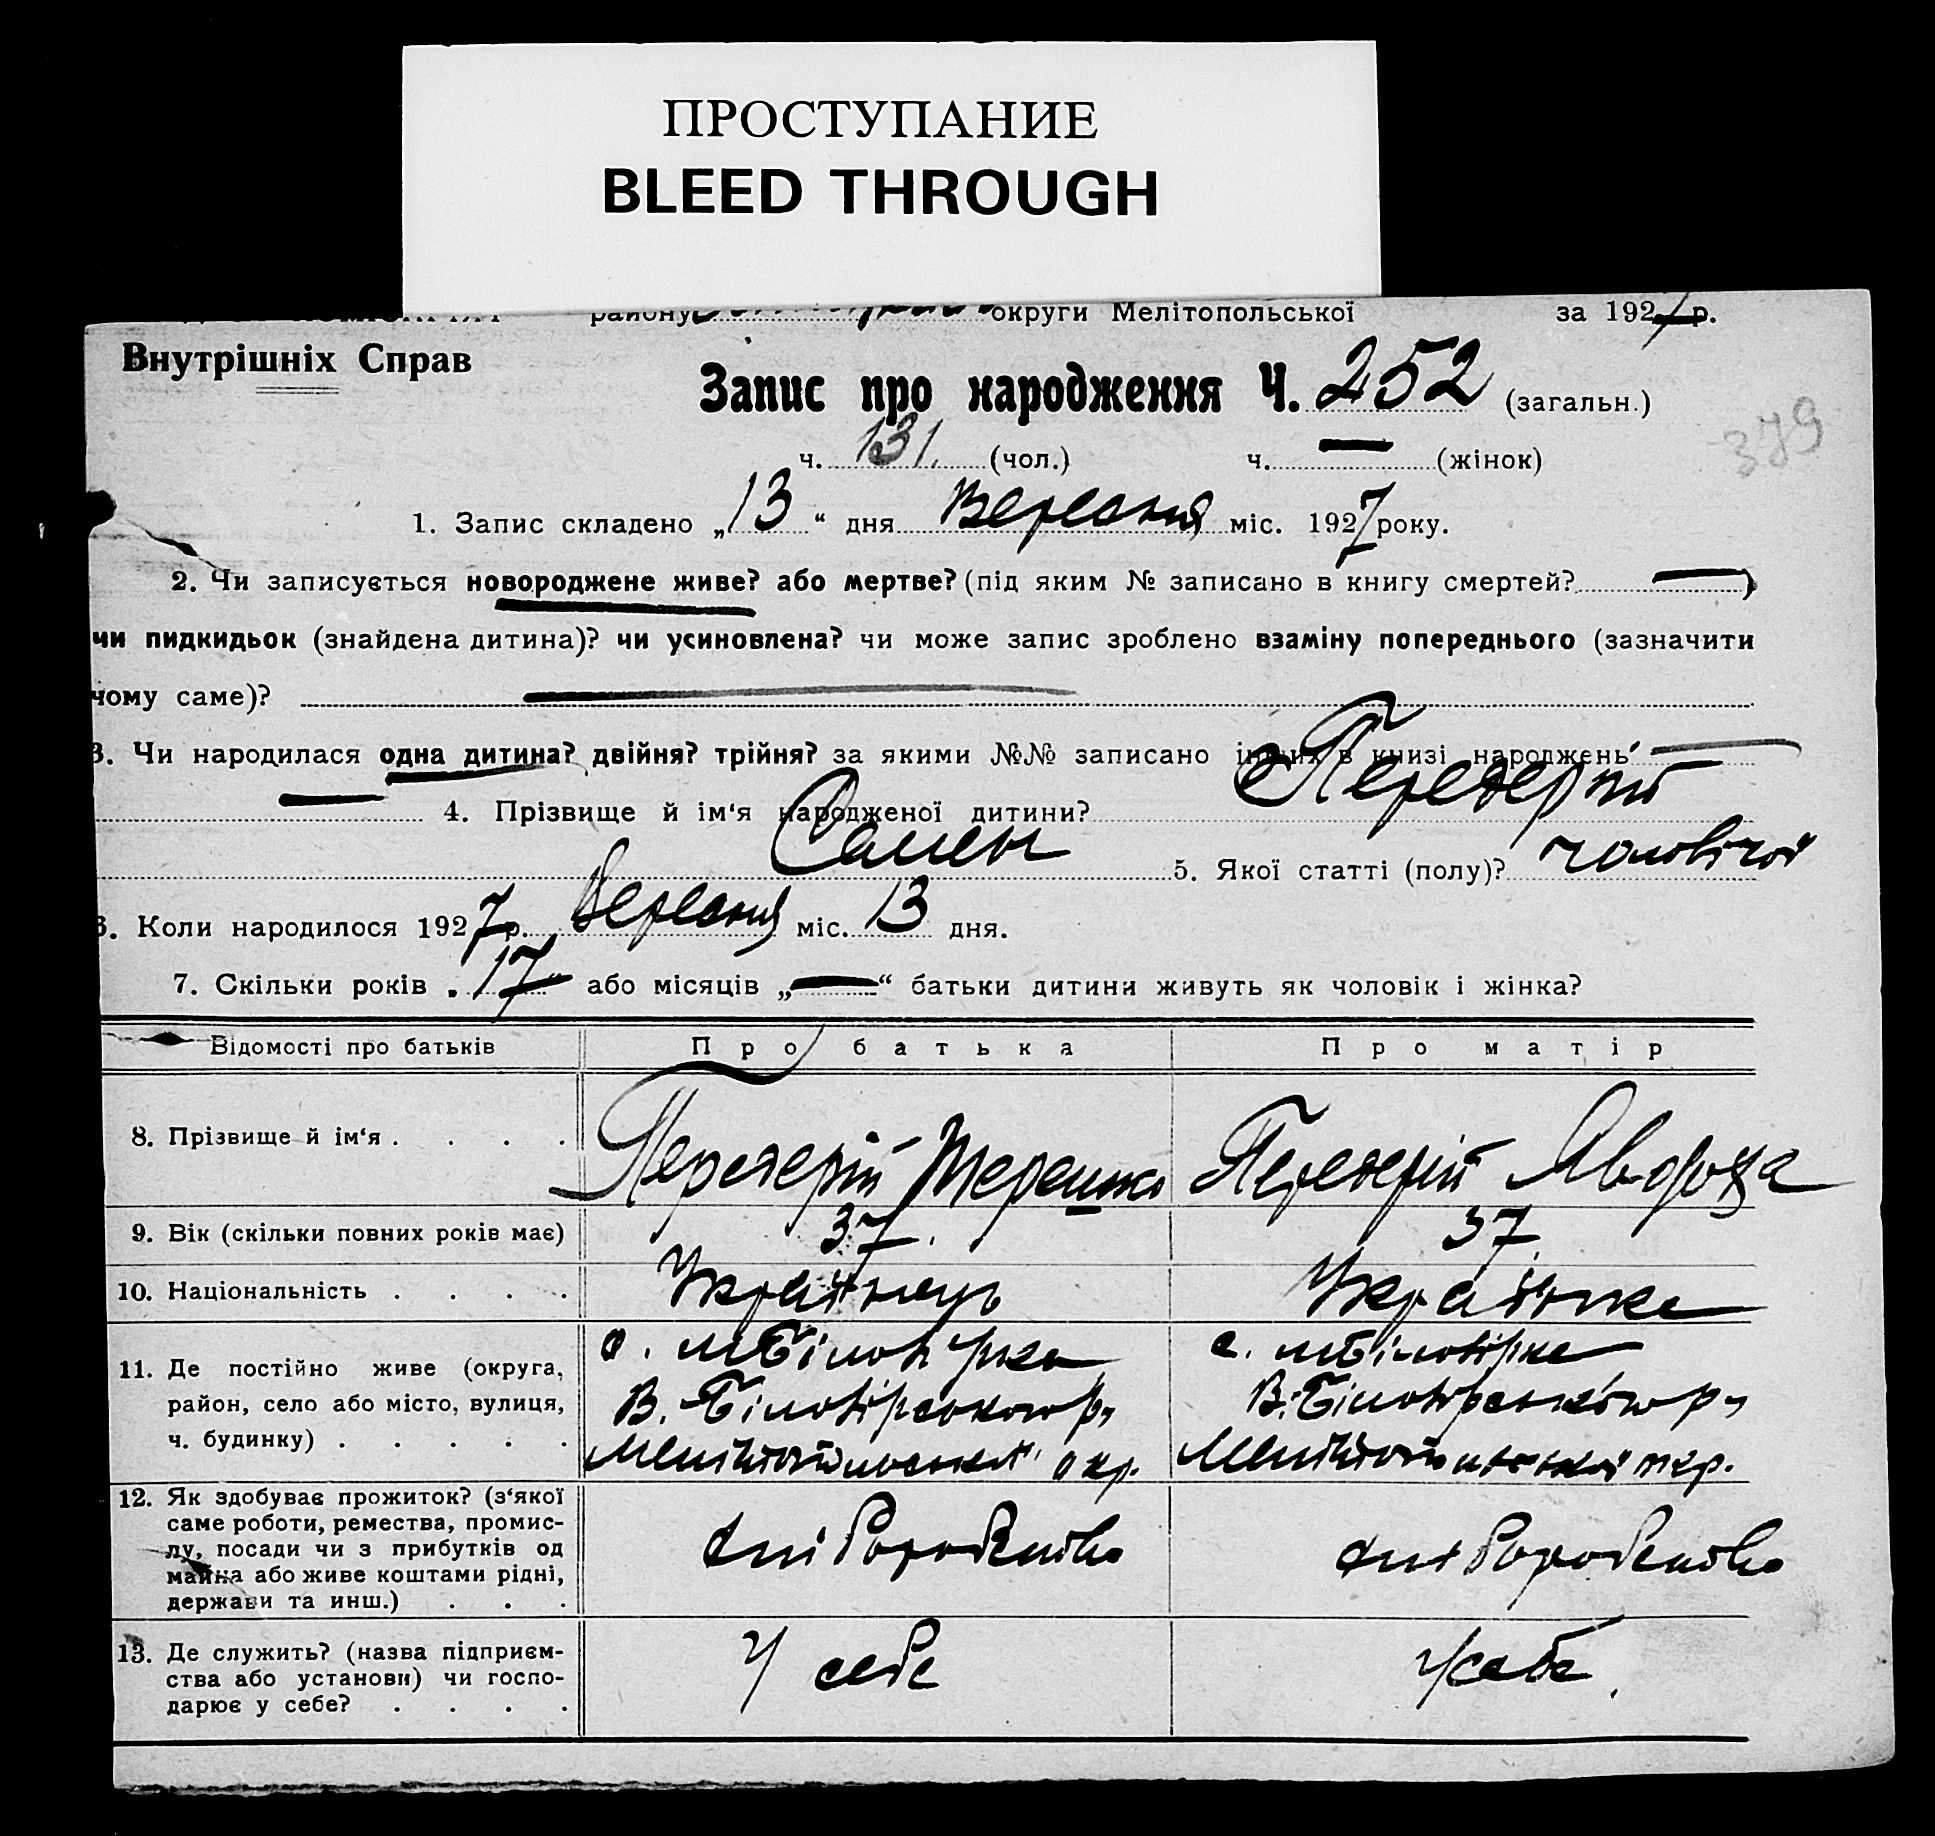 ПРОСТУПАНИЕ
BLEED THROUGH
району округи Мелітопольської за 1927 р.
Внутрішніх Справ
Запис про народження Ч. 252 (загальн.)
379
ч. 131. (чол.) ч. — (жінок)
1. Запис складено „13“ дня Вересня міс. 1927 року.
2. Чи записується новороджене живе? або мертве? (під яким № записано в книгу смертей? — )
чи пидкидьок (знайдена дитина)? чи усиновлена? чи може запис зроблено взаміну попереднього (зазначити
чому саме)? —
3. Чи народилася одна дитина? двійня? трійня? за якими №№ записано інших в книзі народжень —
— 4. Прізвище й ім‘я народженої дитини? Передерій
Семен 5. Якої статті (полу)? чоловічої
6. Коли народилося 1927 р. Вересня міс. 13 дня.
7. Скільки років „17“ або місяців „—“ батьки дитини живуть як чоловік і жінка?
Відомості про батьків Про батька Про матір
8. Прізвище й ім‘я . . . . Передерій Терешко Передерій Явдоха
9. Вік (скільки повних років має) 37. 37.
10. Національність . . . . Українець Українка
11. Де постійно живе (округа, район, село або місто, вулиця, ч. будинку) . . . . .
с. мБілозірка
В. Білозірського р,
Мелітопольської окр.
с. мБілозірка
В. Білозірського р,
Мелітопольської окр.
12. Як здобуває прожиток? (з‘якої саме роботи, ремества, промислу, посади чи з прибутків од майна або живе коштами рідні, держави та инш.) . . .
хліборобство
хліборобство
13. Де служить? (назва підприємства або установи) чи господарює у себе? . . . .
У себе
У себе.